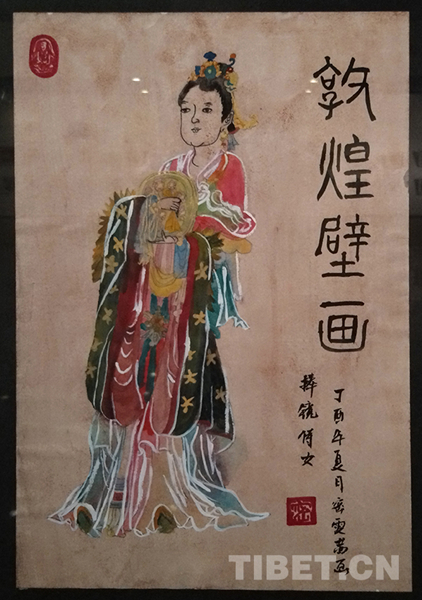 敦煌壁画
丁酉年夏月
捧镜侍女
TIBET.CN